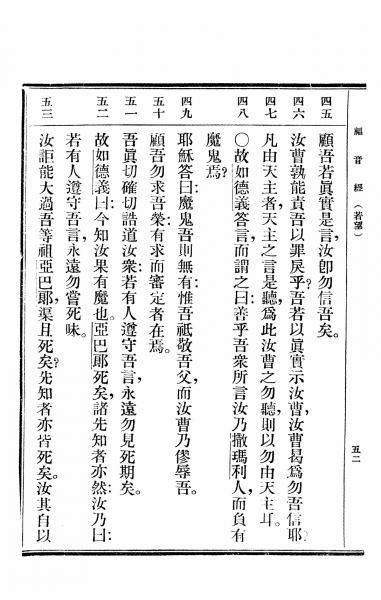 福音經（若望）
五二
四五
顧吾若眞實是言，汝卽勿信吾矣。
四六
汝曹孰能責吾以罪戾乎？吾若以眞實示汝曹，汝曹曷爲勿吾信耶？
四七
凡由天主者，天主之言是聽，爲此汝曹之勿聽，則以勿由天主耳。
四八
〇故如德義答言，而謂之曰：善乎吾衆所言汝乃撒瑪利人，而負有
魔鬼焉？
四九
耶穌答曰：魔鬼吾則無有：惟吾祗敬吾父，而汝曹乃僇辱吾。
五十
顧吾勿求吾榮：有求而審定者在焉。
五一
吾眞切確切誥道汝衆：若有人遵守吾言，永遠勿見死期矣。
五二
故如德義曰：今知汝果有魔也。亞巴郎死矣，諸先知者亦然：汝乃曰：
若有人遵守吾言，永遠勿嘗死味。
五三
汝詎能大過吾等祖亞巴郎，渠且死矣？先知者亦皆死矣。汝其自以